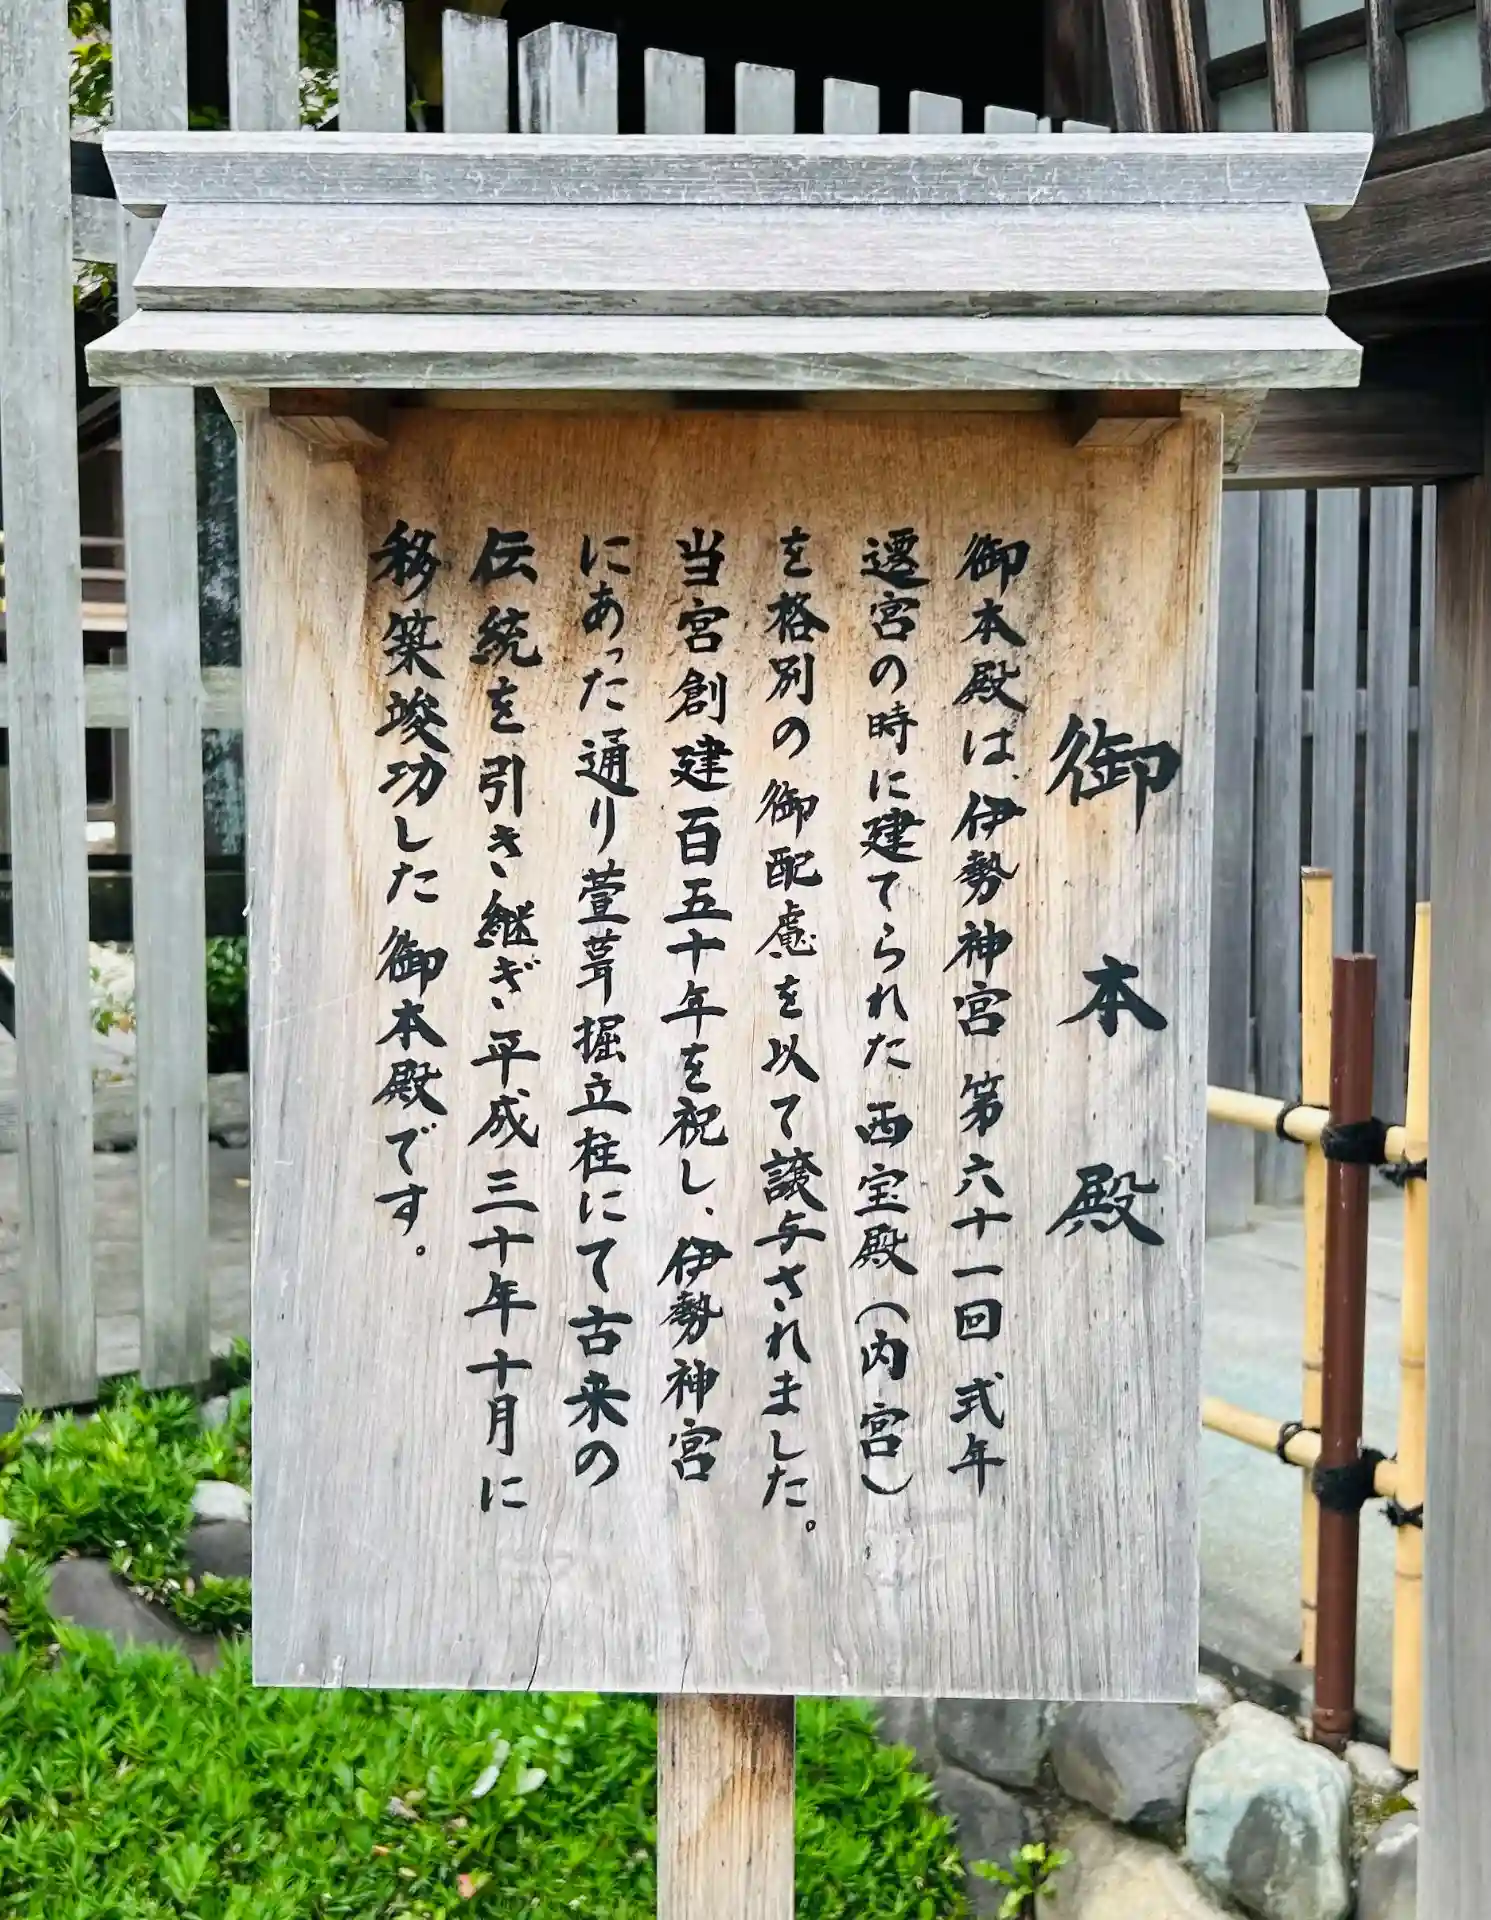 御本殿
御本殿は、伊勢神宮第六十一回式年
遷宮の時に建てられた西宝殿（内宮）
を格別の御配慮を以て譲与されました。
当宮創建百五十年を祝し、伊勢神宮
にあった通り萱葺掘立柱にて古来の
伝統を引き継ぎ平成三十年十月に
移築竣功した御本殿です。